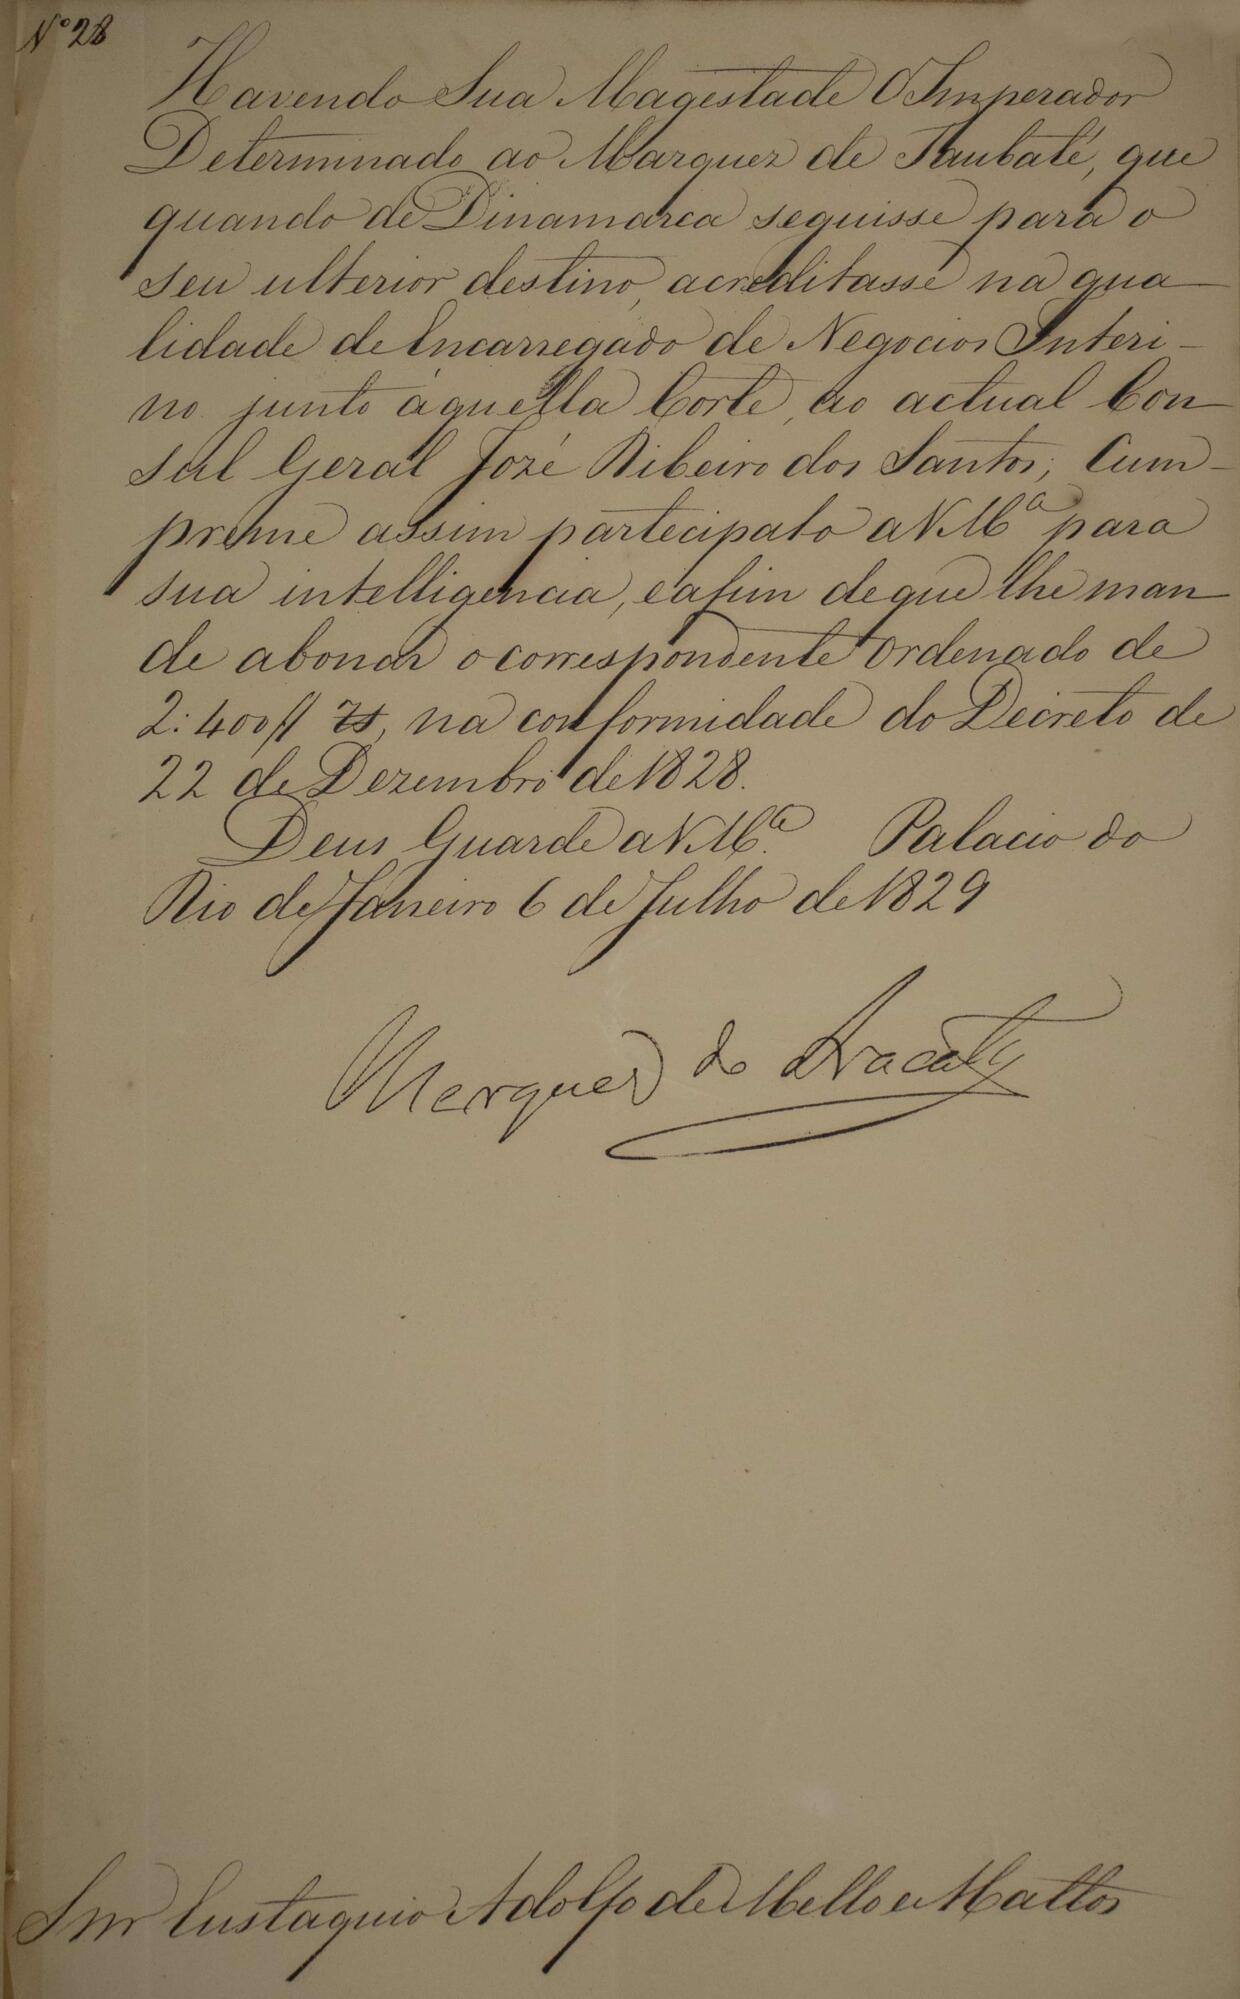 Nº 28
Havendo Sua Magestade O Imperador
Determinado ao Marquez de Taubaté, que
quando de Dinamarca seguisse para o
seu ulterior destino, acreditasse na qua-
lidade de Encarregado de Negocios Interi-
no junto áquella Corte, ao actual Con-
sul Geral José Ribeiro dos Santos; Cum-
preme assim partecipalo a V Mᶜᵉ para
sua intelligencia, e afim de que lhe man-
de abonar o correspondente Ordenado de
2:400$ rs, na conformidade do Decreto de
22 de Dezembro de 1828.
Deus Guarde a V Mᶜᵉ. Palacio do
Rio de Janeiro 6 de Julho de 1829
Marquez do Aracaty
Snr Eustaquio Adolfo de Mello e Mattos